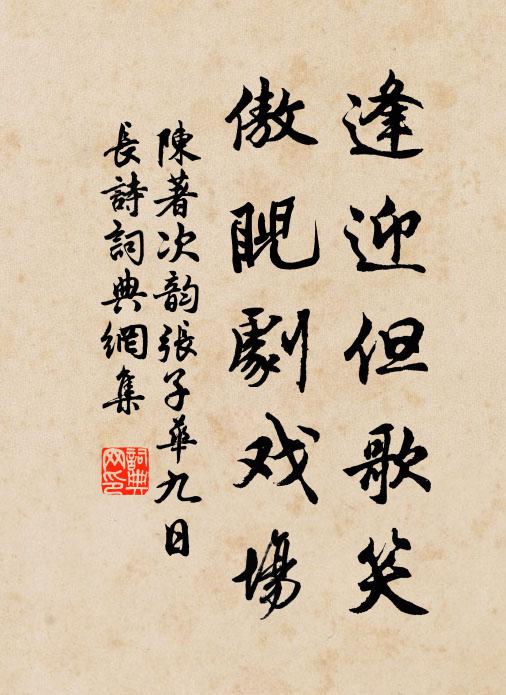 逢迎但歌笑
傲睨劇戏場
陳著次韵張子華九日
長詩詞典網集
詞典
网印